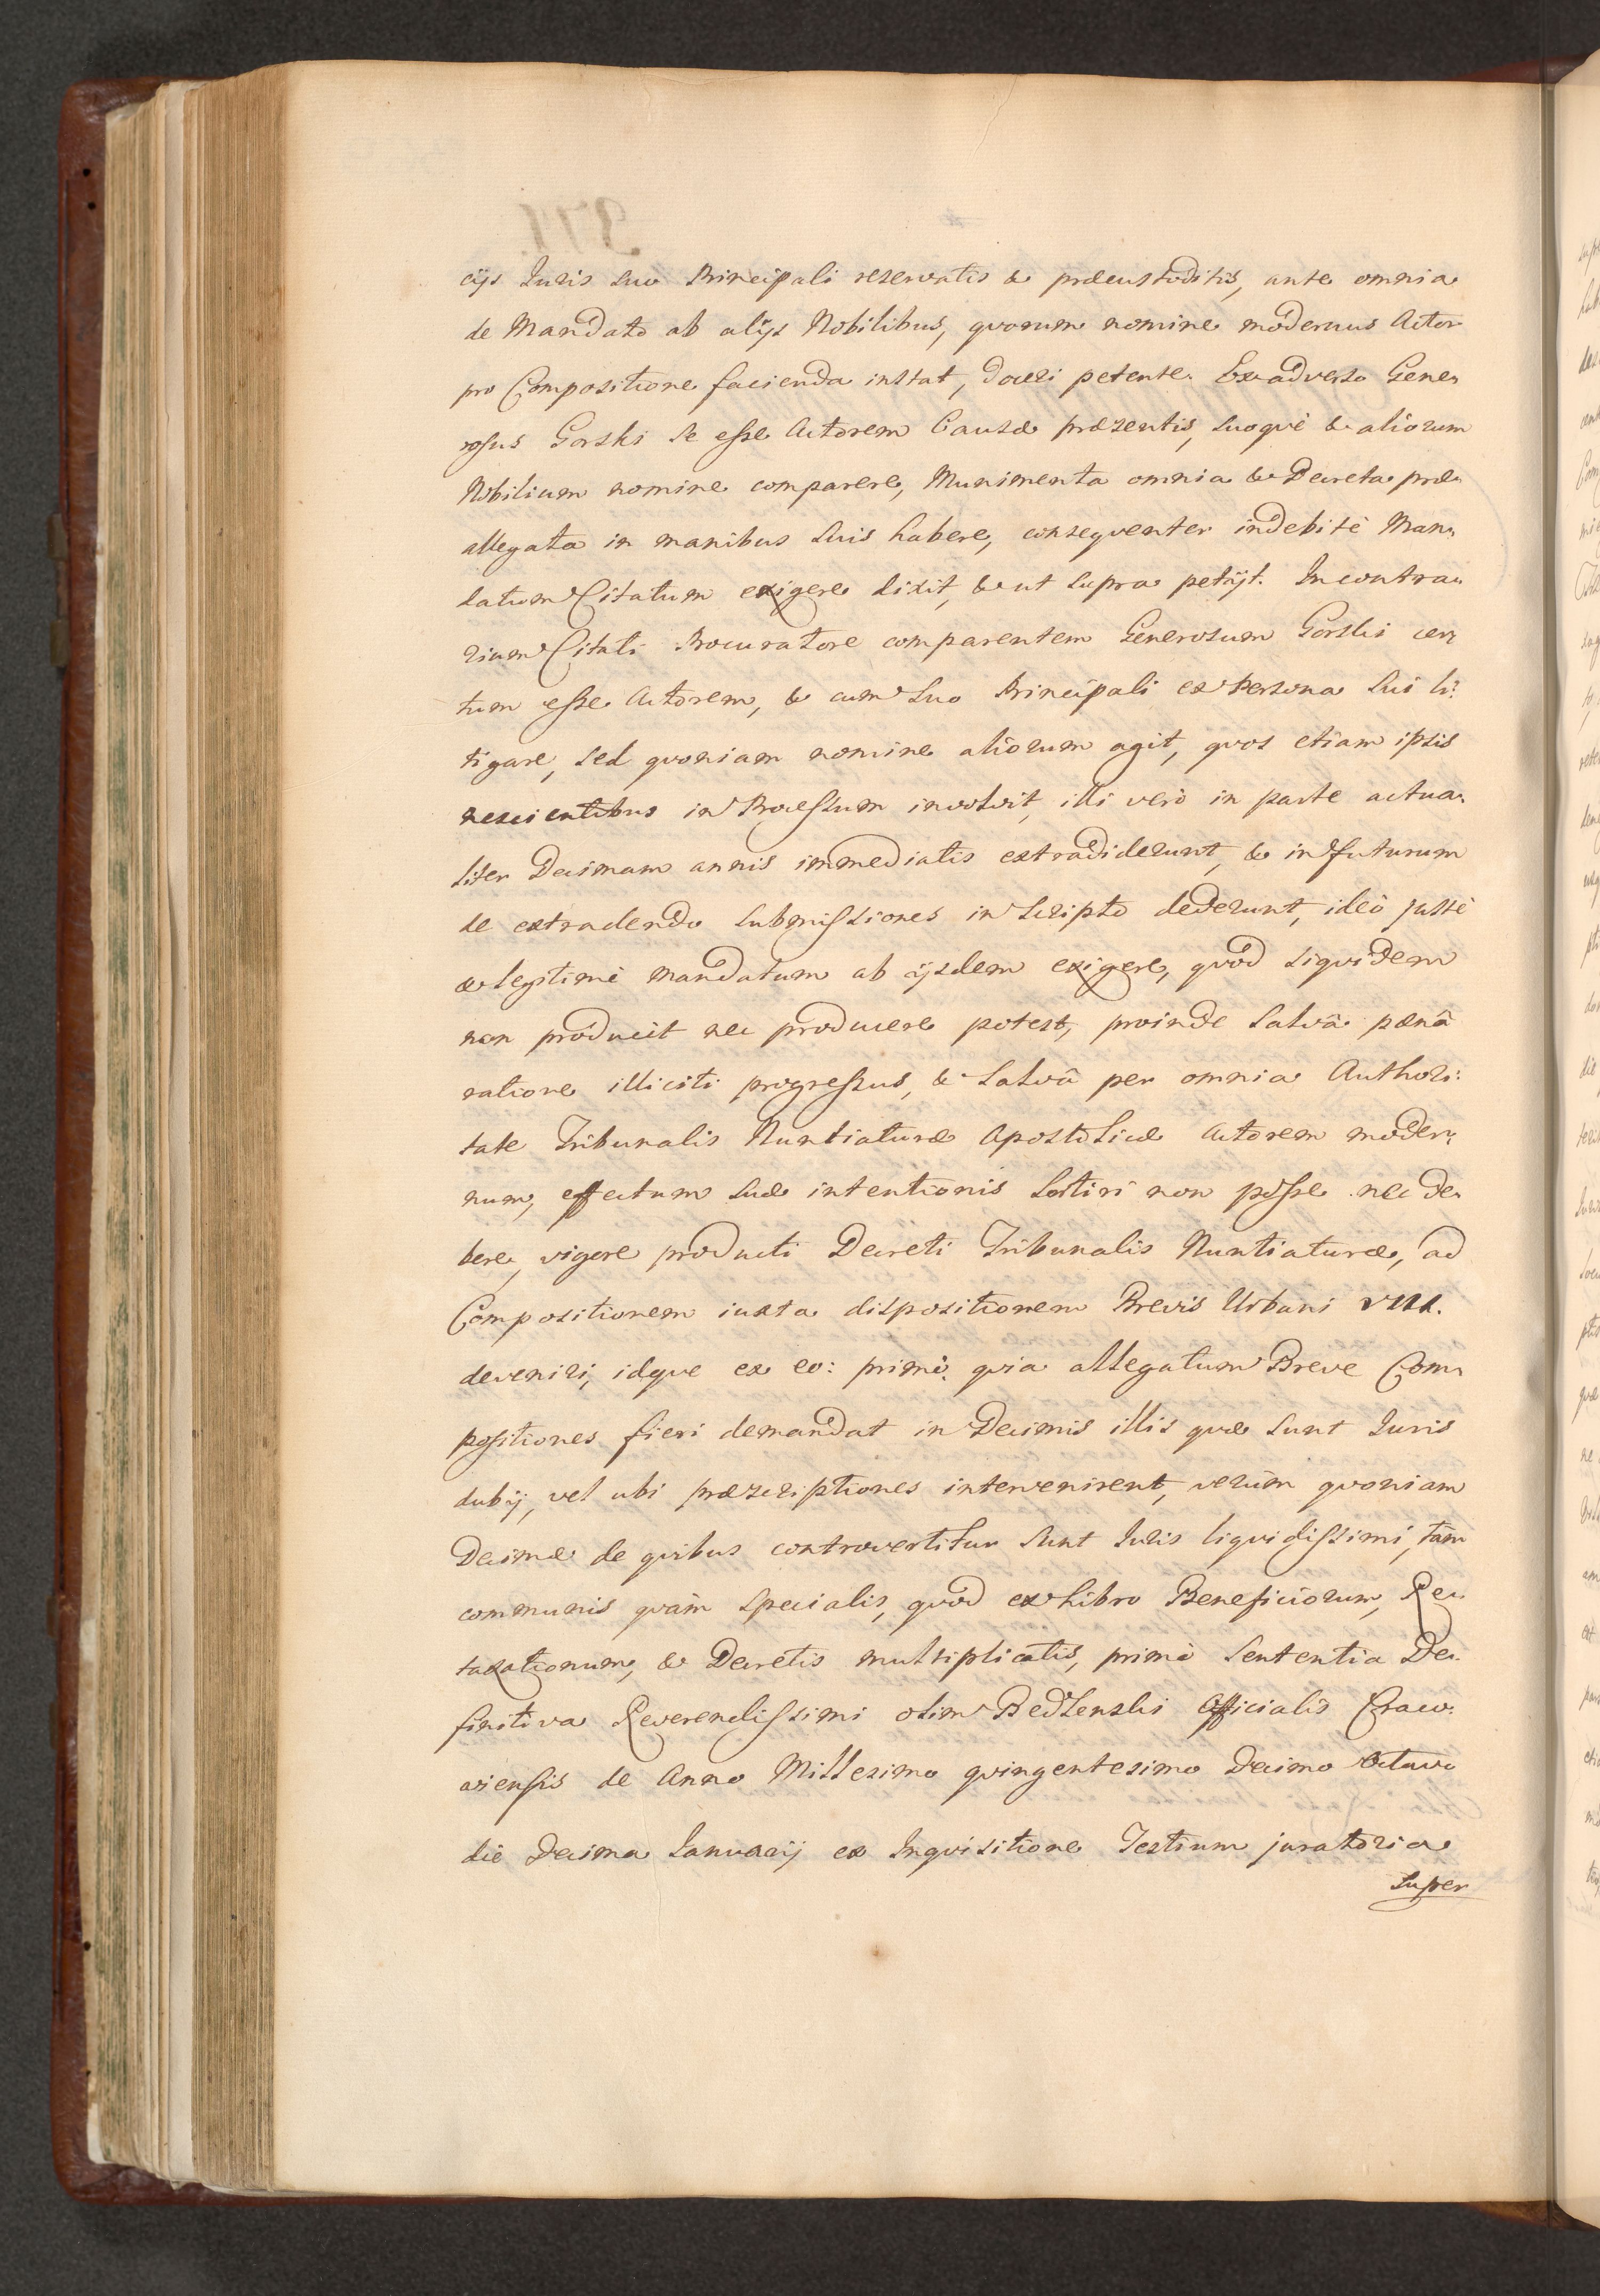 cijs Iuris suo Principali reservatis & præcustoditis, ante omnia
de Mandato ab alijs Nobilibus, quorum nomine modernus Actor
pro Compositione facienda instat, doceri petente. Ex adverso Gene-
rosus Gorski se esse Actorem Causæ præsentis, suoquè & aliorum
Nobilium nomine comparere, Munimenta omnia & Decreta præ-
allegata in manibus suis habere, consequenter indebitè Man-
datum Citatum exigere dixit, & ut supra petijt. In contra-
rium Citati Procuratore comparentem Generosum Gorski cer-
tum esse Actorem, & cum suo Principali ex Persona sui li-
tigare, sed quoniam nomine aliorum agit, quos etiam ipsis
nescientibus in Processum involvit, illi verò in parte actua-
liter Decimam annis immediatis extradiderunt, & in futurum
de extradendo submissiones in scripto dederunt, ideò justè
& legitimè mandatum ab ijsdem exigere, quòd siquidem
non producit nec producere potest, proinde salvâ pænâ
ratione illiciti progressus, & salvâ per omnia Authori-
tate Tribunalis Nuntiaturæ Apostolicæ Actorem moder-
num, effectum suæ intentionis sortiri non posse nec de-
bere, vigore producti Decreti Tribunalis Nuntiaturæ, ad
Compositionem iuxta dispositionem Brevis Urbani VIII.
deveniri, idque ex eo: primò. quia allegatum Breve Com-
positiones fieri demandat in Decimis illis quæ sunt Iuris
dubij, vel ubi præscriptiones intervenirent, verùm quoniam
Decimæ de quibus controvertitur sunt Iuris liquidissimi, tàm
communis quàm specialis, quòd ex Libro Beneficiorum, Re-
taxationum, & Decretis multiplicatis, primò Sententia De-
finitiva Reverendissimi olim Bedlenski Officialis Craco-
viensis de Anno Millesimo quingentesimo Decimo Octavo
die Decima Ianuarij ex Inquisitione Testium juratoria
super